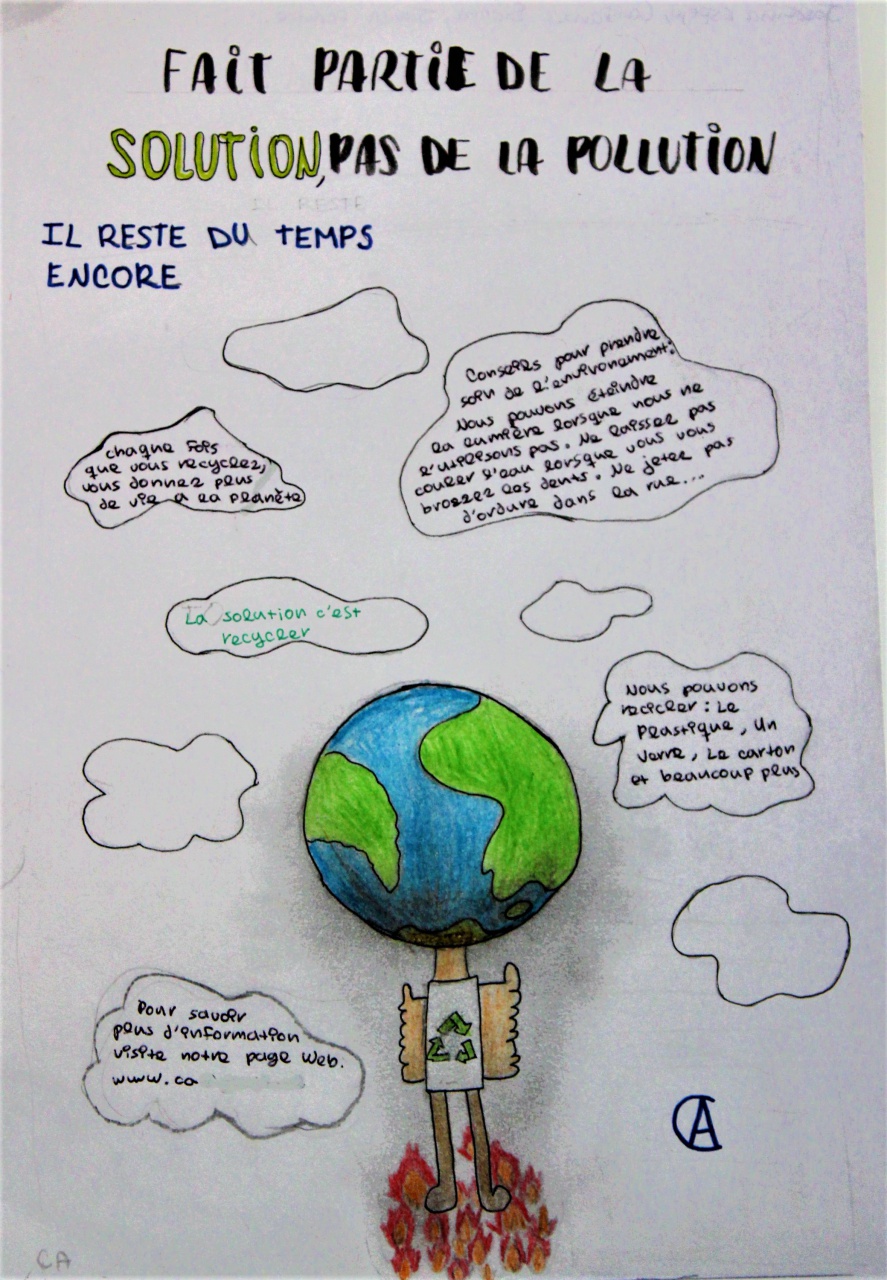 FAIT PARTIE DE LA
SOLUTION, PAS DE LA POLLUTION
IL RESTE
IL RESTE DU TEMPS
ENCORE
Conseils pour prendre
soin de l'environement:
Nous pouvons éteindre
la lumière lorsque nous ne
l'utilisons pas. Ne laissez pas
couler l'eau lorsque vous vous
brossez les dents. Ne jetez pas
d'ordure dans la rue...
chaque fois
que vous recyclez,
vous donnez plus
de vie a la planète
La solution c'est
recycler
Nous pouvons
recicler: Le
Plastique, Un
Verre, Le carton
et beaucoup plus
Pour savoir
plus d'information
visite notre page Web.
www.ca
CA
CA